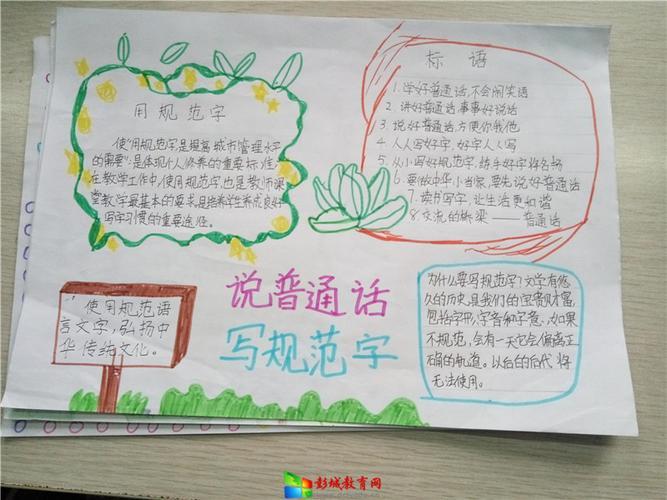 用规范字
使"用规范字,是提高城市管理水平
的需要",是体现个人修养的重要标准。
在教学工作中,使用规范字,也是教师课
堂教学最基本的要求,是培养学生养成良好
写字习惯的重要途径。
标语
1.学好普通话,不会闹笑话
2.讲好普通话,事事好说话
3.说好普通话,方便你我他
4.人人写好字,好字人人写
5.从小写好规范字,练手好字终名扬
6.要做中华小当家,要先说好普通话
7.读书写字,让生活更和谐
8.交流的桥梁——普通话
使用规范语
言文字,弘扬中
华传统文化。
说普通话
写规范字
为什么要写规范字?文字有悠
久的历史,是我们的宝贵财富,
包括字形,字音和字意,如果
不规范,会有一天它会偏离正
确的轨道。以后的后代将
无法使用。
彭城教育网